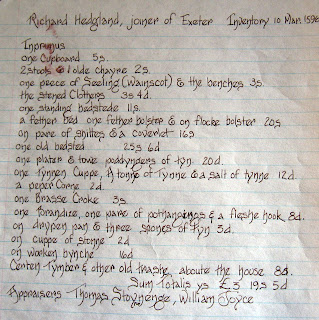 Richard Hedgland, joiner of Exeter Inventory 10 Mar. 1596
Inprimus
one Cupboard 5s.
2 stools & 1 olde chayre 2s.
one peece of Seeling (Wainscot) & the benches 3s.
the stened Clothers 3s 4d.
one standing bedstede 11s.
a fether bed one fether bolster & on flocke bolster 20s
on pare of shittes & a coverlet 16s
one old bedsted 25s 6d
one plater & towe poddyngers of tyn. 20d.
one Tynnen Cuppe, A tonne of Tynne & a salt of tynne 12d.
a peper Corne 2d.
one Brasse Croke 3s.
one Brandize, one pare of pothangings & a fleshe hook 8d.
on drypen pan & three spones of Tyn 3d.
on cuppe of stonne 2d
on worken bynche 16d
Certen Tymber & other old trashe aboute the house 8d.
Sum Totalis ys £3 19s 5d
Appraisers - Thomas Stoynenge, William Joyce